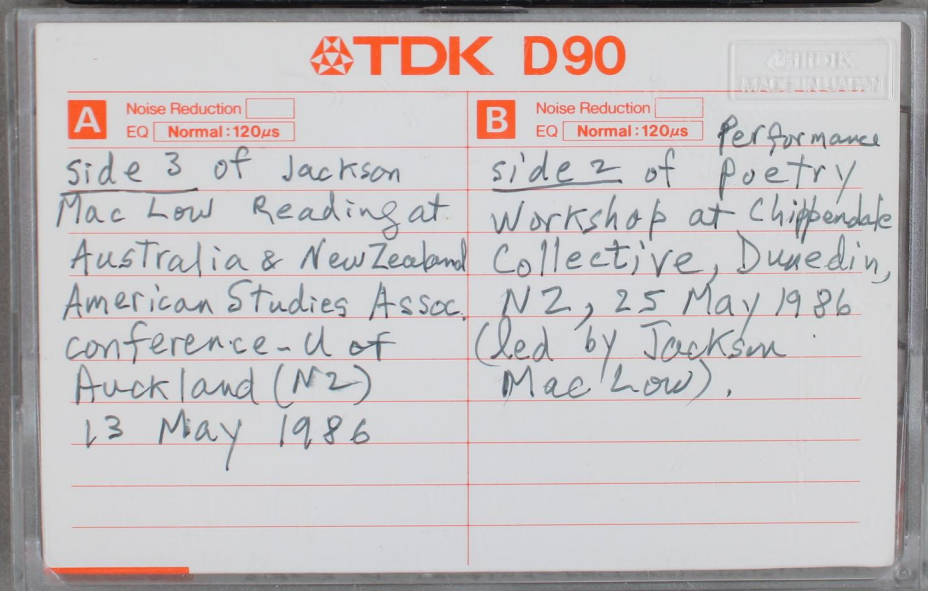 TDK D90
TDK
MADE IN JAPAN
A Noise Reduction
EQ Normal:120µs
side 3 of Jackson
Mac Low Reading at
Australia & New Zealand
American Studies Assoc.
conference - U of
Auckland (NZ)
13 May 1986
B Noise Reduction
EQ Normal:120µs
Performance
side 2 of Poetry
Workshop at Chippendale
Collective, Dunedin,
NZ, 25 May 1986
(led by Jackson
Mac Low).